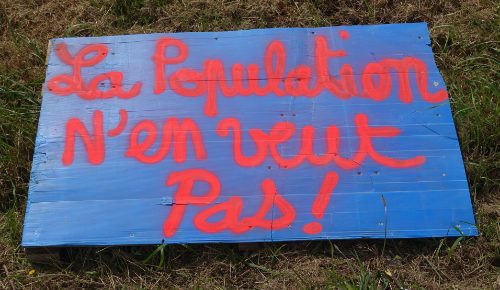 La Population
N'en veut
Pas!